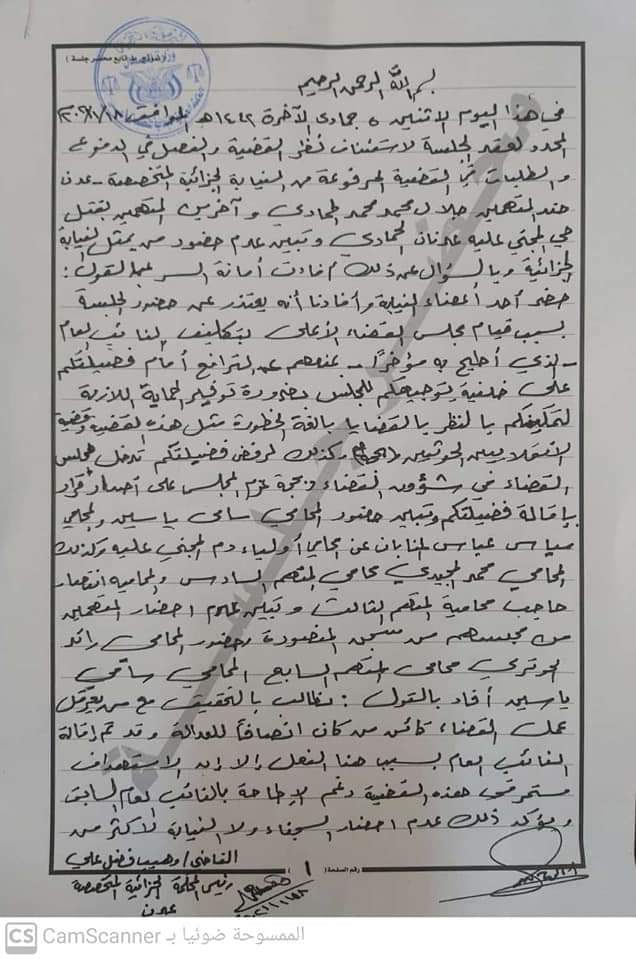 بسم الله الرحمن الرحيم
في هذا اليوم الاثنين ٥ جمادى الآخرة ١٤٤٢هـ الموافق ٢٠٢١/١/١٨
المحدد لعقد الجلسة لاستئناف نظر القضية والفصل في الدفوع
والطلبات في القضية المرفوعة من النيابة الجزائية المتخصصة - عدن
ضد المتهمين جلال محمد محمد الحمادي وآخرين المتهمين بقتل
المجني عليه عدنان الحمادي وتبين عدم حضور من يمثل النيابة
الجزائية وبالسؤال عن ذلك أفادت أمانة السر بالقول:
حضر أحد أعضاء النيابة وأفادنا أنه يعتذر عن حضور الجلسة
بسبب قيام مجلس القضاء الأعلى بتكليف النائب العام
- الذي أطيح به مؤخرًا - بمنعهم عن الترافع أمام فضيلتكم
على خلفية توجيهكم للمجلس بضرورة توفير الحماية اللازمة
لتكليفكم بالنظر بالقضايا بالغة الخطورة مثل هذه القضية وقضية
الانقلابيين الحوثيين وكذلك لرفض فضيلتكم تدخل مجلس
القضاء في شؤون القضاء عزم المجلس على اصدار قرار
بإقالة فضيلتكم وتبين حضور المحامي سامي ياسين والمحامي
عباس المنابان عن محامي أولياء دم المجني عليه وكذلك
المحامي محمد المجيدي محامي المتهم السادس والمحامية انتصار
حاجب محامية المتهم الثالث وتبين عدم احضار المتهمين
من محبسهم من سجن المنصورة وحضور المحامي رائد
محامي المتهم السابع المحامي سامي
ياسين أفاد بالقول: نطالب بالتحقيق مع من يعرقل
عمل القضاء كائن من كان انصافاً للعدالة وقد تم إقالة
النائب العام بسبب هذا الفعل إلا إن الاستهداف
مستمر في هذه القضية رغم الإطاحة بالنائب العام السابق
ويؤكد ذلك عدم احضار السجناء ولا النيابة لأكثر من
القاضي / وهيب فضل علي
رئيس المحكمة الجزائية المتخصصة
عدن
رقم الصفحة ( ١ )
محضر جلسة
CS CamScanner الممسوحة ضوئيا بـ